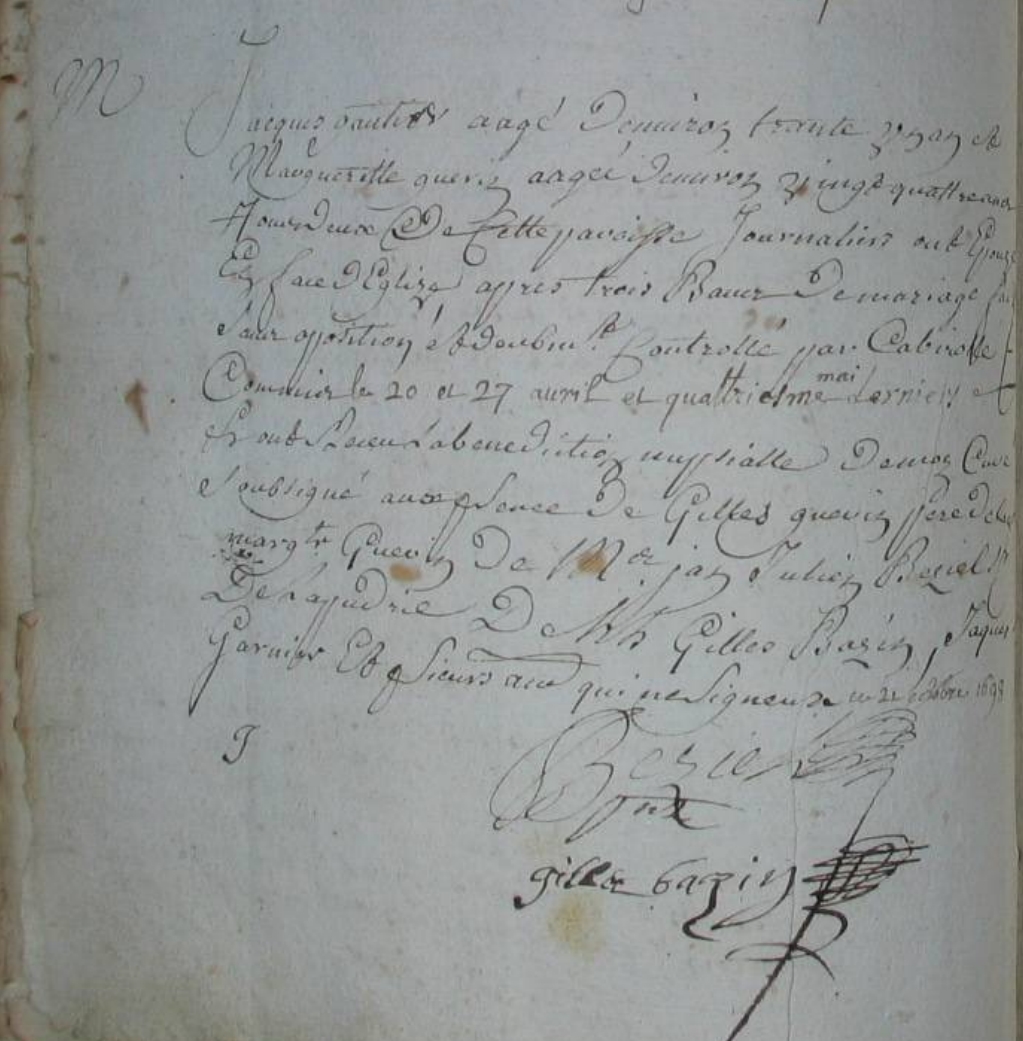 M
Jacques gautier aagé denuiron trente vn an et
Margueritte guerin aageé denuiron vingt quattre ans
Tour deux de Cette paroisse Journaliers ont Epouzé
En face d'Eglize appres trois Bancz De mariage
sans oposition et deubmt Controllé par Cabirolle
Commis le 20 et 27 auril et quattriesme mai derniers et
et ont Receu la benediction nupsialle De moy Curé
soubsigné aux psence De Gilles guerin pere de la
margte Guerin De Mre jan Julien Beziel
De La De Mre Gilles Bazin, Jaques
Garnier Et psieurs aues qui ne signeux ce 21 octobre 1698
J
Beziel
ptre
gilles bazin